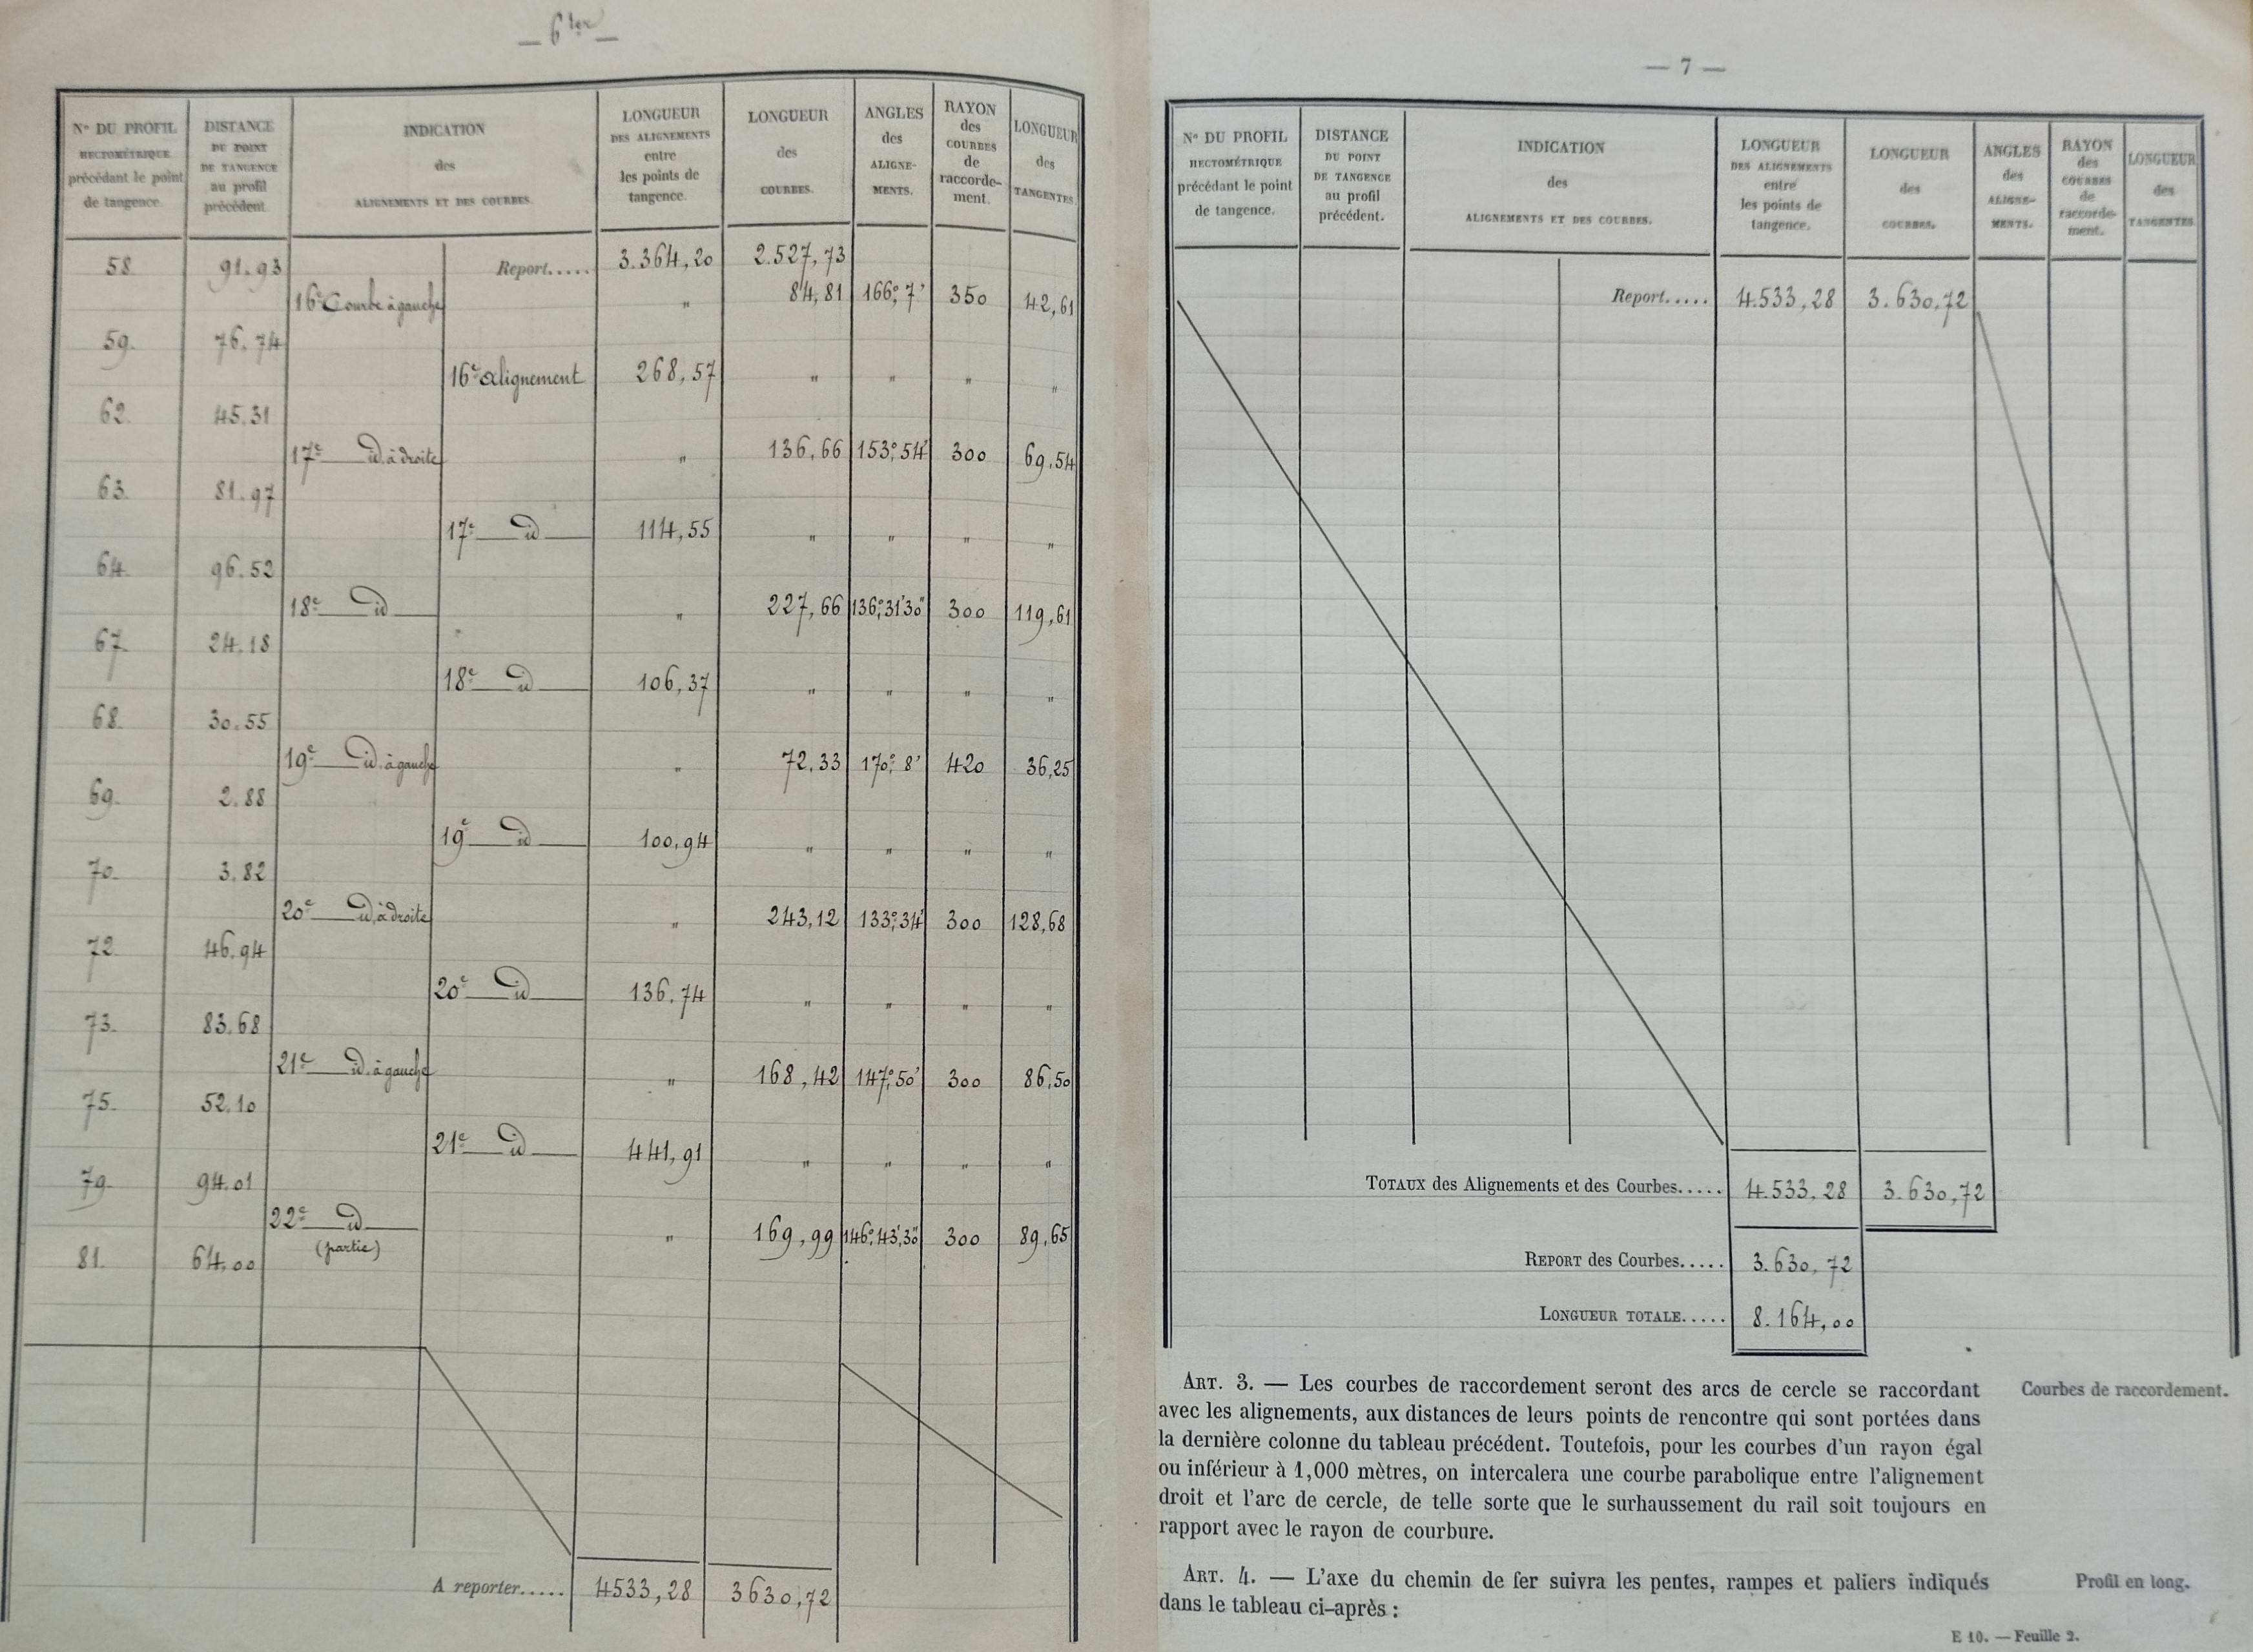 — 6 ter —
Nº DU PROFIL HECTOMÉTRIQUE précédant le point de tangence. | DISTANCE DU POINT DE TANGENCE au profil précédent. | INDICATION des ALIGNEMENTS ET DES COURBES. | LONGUEUR DES ALIGNEMENTS entre les points de tangence. | LONGUEUR des COURBES. | ANGLES des ALIGNE-MENTS. | RAYON des COURBES de raccorde-ment. | LONGUEUR des TANGENTES.
58. 91.93 Report..... 3.364,20 2.527,73
16e Courbe à gauche " 84,81 166°,7' 350 42,61
59. 76.74
16e alignement 268,57 " " " "
62. 45.31
17e id. à droite " 136,66 153°,54' 300 69,54
63. 81.97
17e id 114,55 " " " "
64. 96.52
18e id " 227,66 136°,31'30" 300 119,61
67. 24.18
18e id 106,37 " " " "
68. 30.55
19e id. à gauche " 72,33 170° 8' 420 36,25
69. 2.88
19e id 100,94 " " " "
70. 3.82
20e id. à droite " 243,12 133°,34' 300 128,68
72. 46,94
20e id 136,74 " " " "
73. 83.68
21e id. à gauche " 168,42 147°,50' 300 86,50
75. 52.10
21e id 441,91 " " " "
79. 94.01
22e id " 169,99 146°,43',30" 300 89,65
(partie)
81. 64,00
A reporter..... 4533,28 3630,72
— 7 —
Nº DU PROFIL HECTOMÉTRIQUE précédant le point de tangence. | DISTANCE DU POINT DE TANGENCE au profil précédent. | INDICATION des ALIGNEMENTS ET DES COURBES. | LONGUEUR DES ALIGNEMENTS entre les points de tangence. | LONGUEUR des COURBES. | ANGLES des ALIGNE-MENTS. | RAYON des COURBES de raccorde-ment. | LONGUEUR des TANGENTES.
Report..... 4.533,28 3.630,72
TOTAUX des Alignements et des Courbes..... 4.533,28 3.630,72
REPORT des Courbes..... 3.630,72
LONGUEUR TOTALE..... 8.164,00
ART. 3. — Les courbes de raccordement seront des arcs de cercle se raccordant
Courbes de raccordement.
avec les alignements, aux distances de leurs points de rencontre qui sont portées dans
la dernière colonne du tableau précédent. Toutefois, pour les courbes d'un rayon égal
ou inférieur à 1,000 mètres, on intercalera une courbe parabolique entre l'alignement
droit et l'arc de cercle, de telle sorte que le surhaussement du rail soit toujours en
rapport avec le rayon de courbure.
ART. 4. — L'axe du chemin de fer suivra les pentes, rampes et paliers indiqués
Profil en long.
dans le tableau ci-après :
E 10. — Feuille 2.